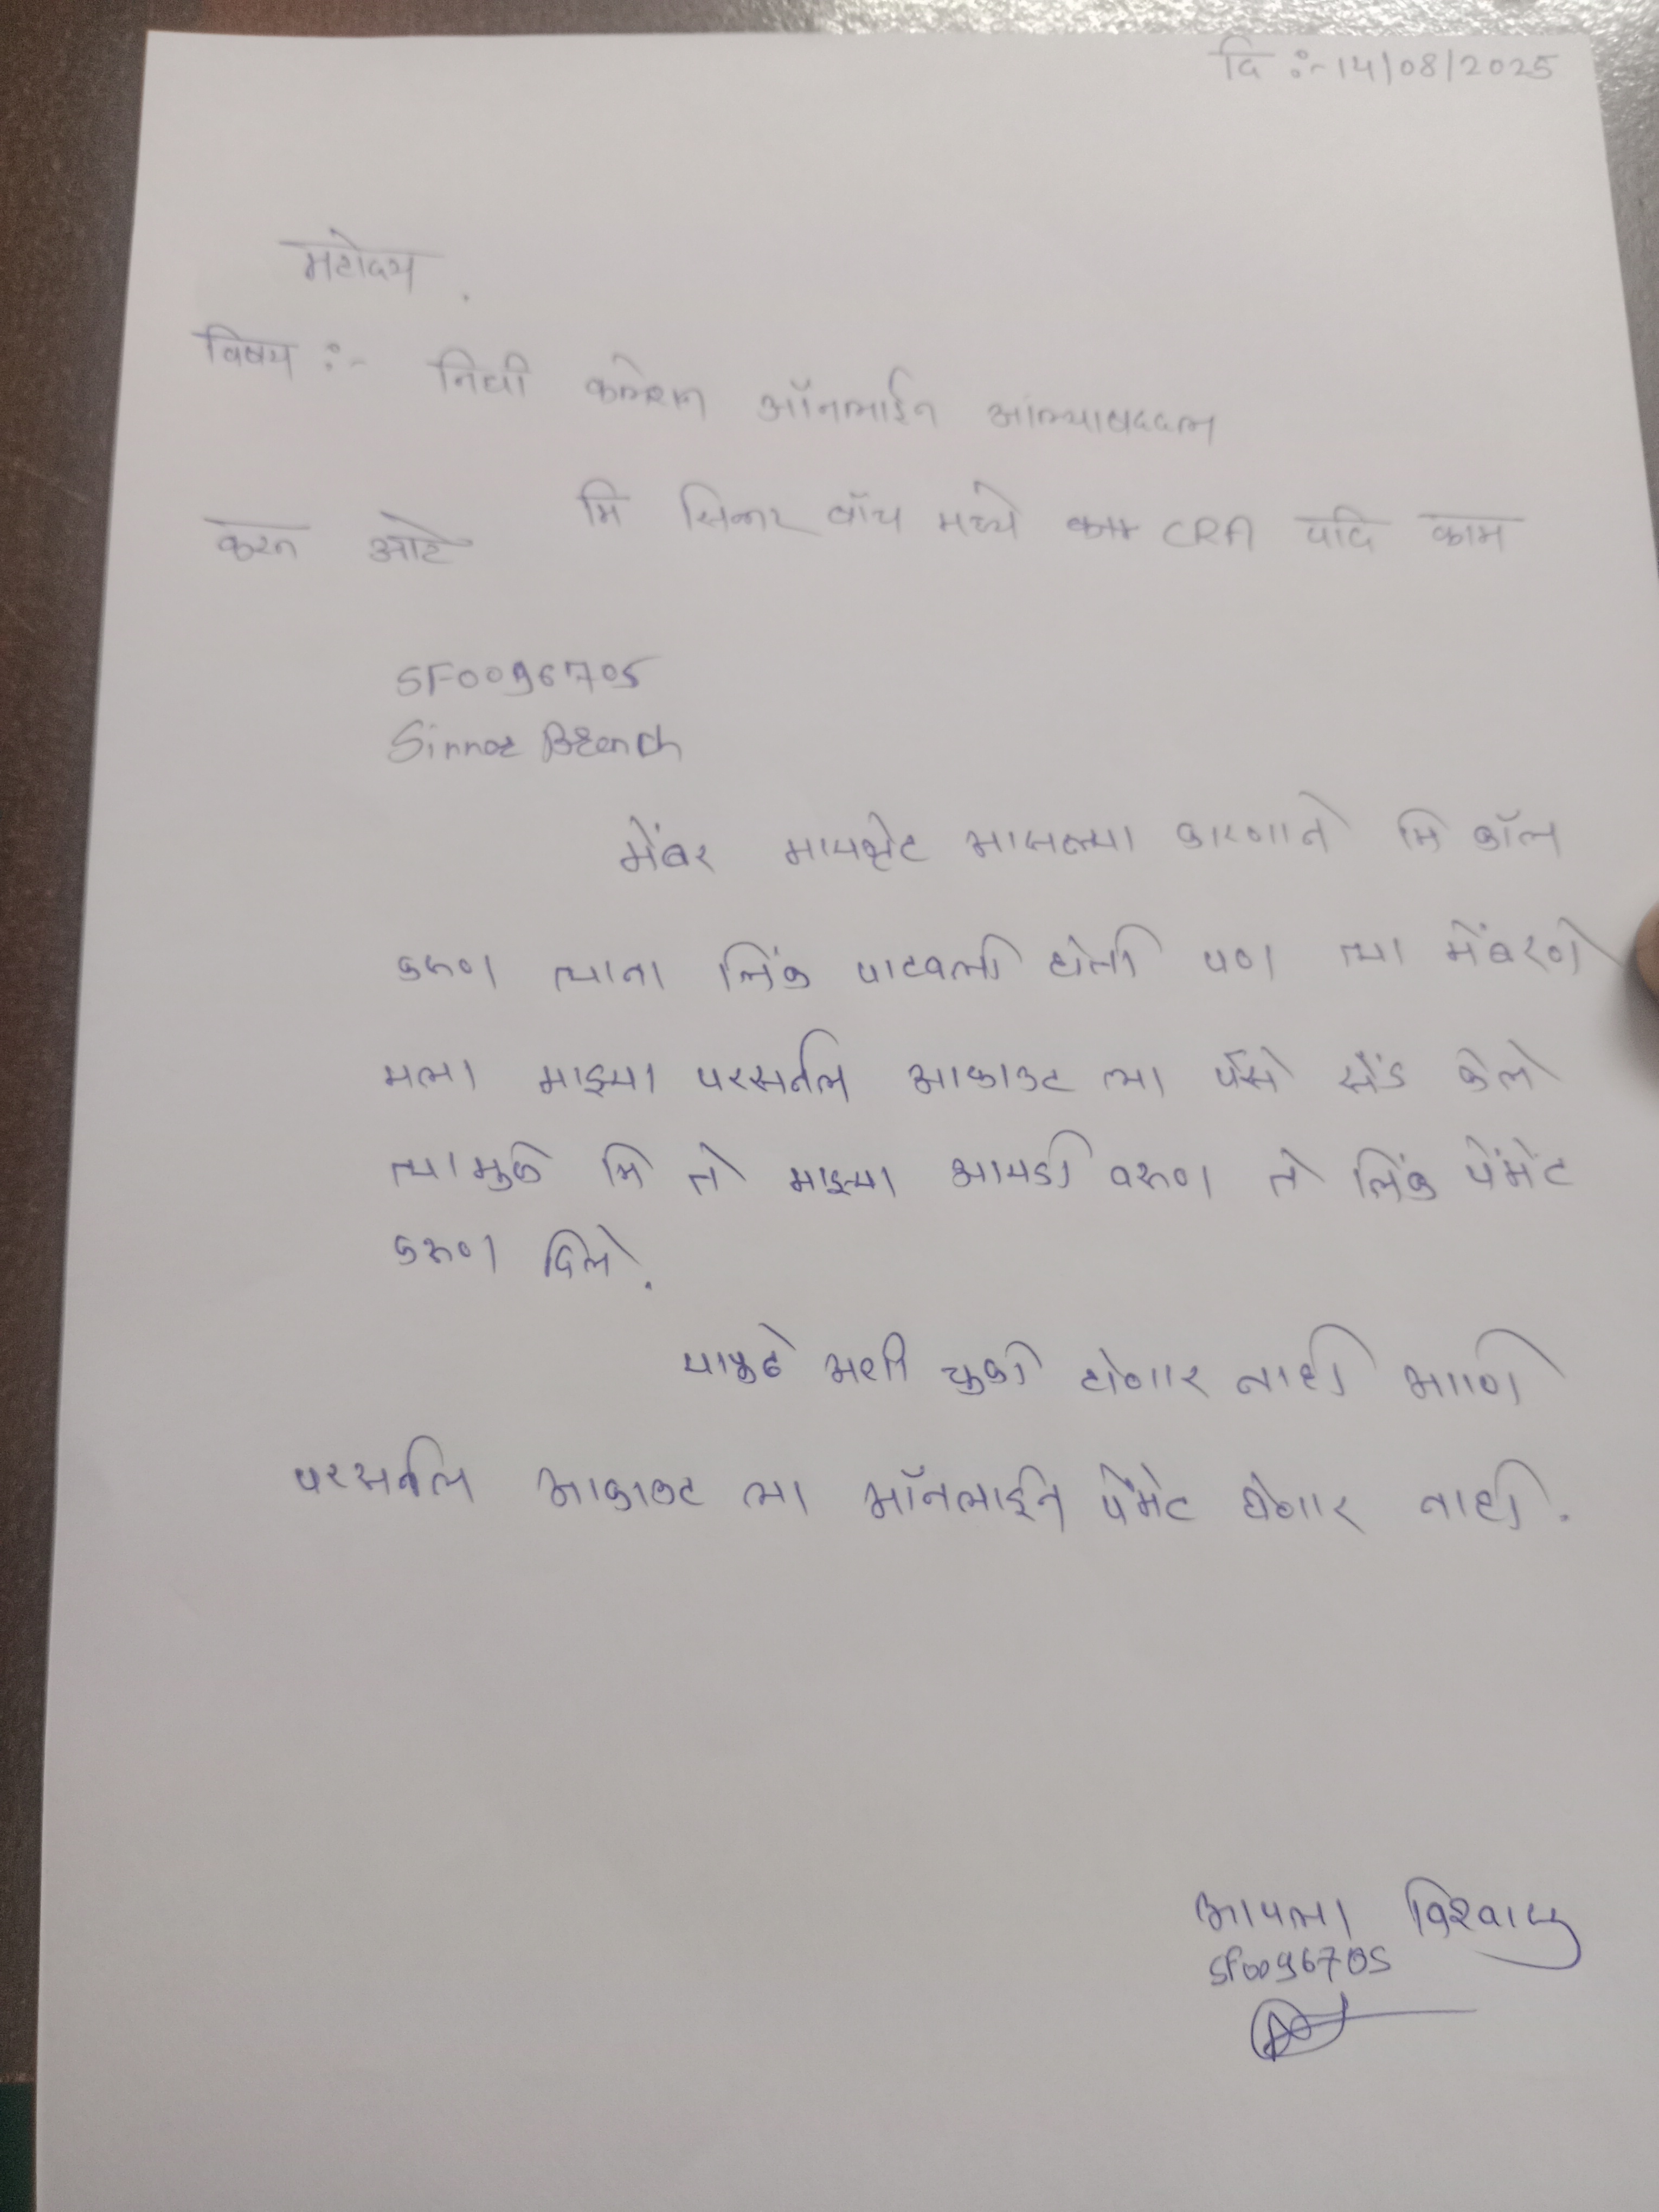 दि :- 14/08/2025
महोदय .
विषय :- निधी कलेक्शन ऑनलाईन आल्याबददल
मि सिन्नर ब्रॉच मध्ये CRA पदि काम
करत आहे
SF0096705
Sinnar Branch
मेंबर मायग्रेट आसल्या कारणाने मि कॉल
करुण त्याना लिंक पाटवली होती पण त्या मेंबरणे
मला माझ्या परसनल आकाउट ला पैसे सेंड केले
त्यामुळे मि ते माझ्या आयडी वरुण ते लिंक पेमेंट
करुण दिले.
यापुढे अशी चुकी होणार नाही आणि
परसनल आकाउट ला ऑनलाईन पेमेंट घेणार नाही.
आपला विश्वासु
SF0096705